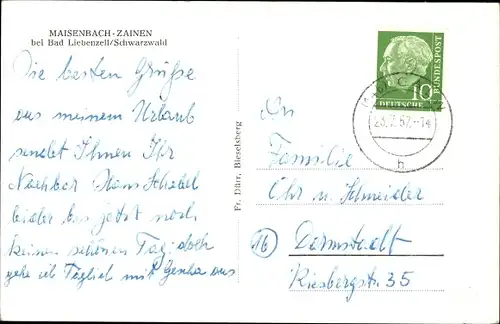 MAISENBACH-ZAINEN
bei Bad Liebenzell/Schwarzwald
Die besten Grüße
aus meinem Urlaub
sendet Ihnen Ihr
Nachbar Hans Schebel
leider bis jetzt noch
keinen schönen Tag, doch
gehe ich Täglich mit Gescha aus
Fr. Dürr, Bieselsberg
10
DEUTSCHE
BUNDESPOST
23.7.57.-14
h
An
Familie
Ohr u. Schneider
16
Darmstadt
Riesbergstr. 35